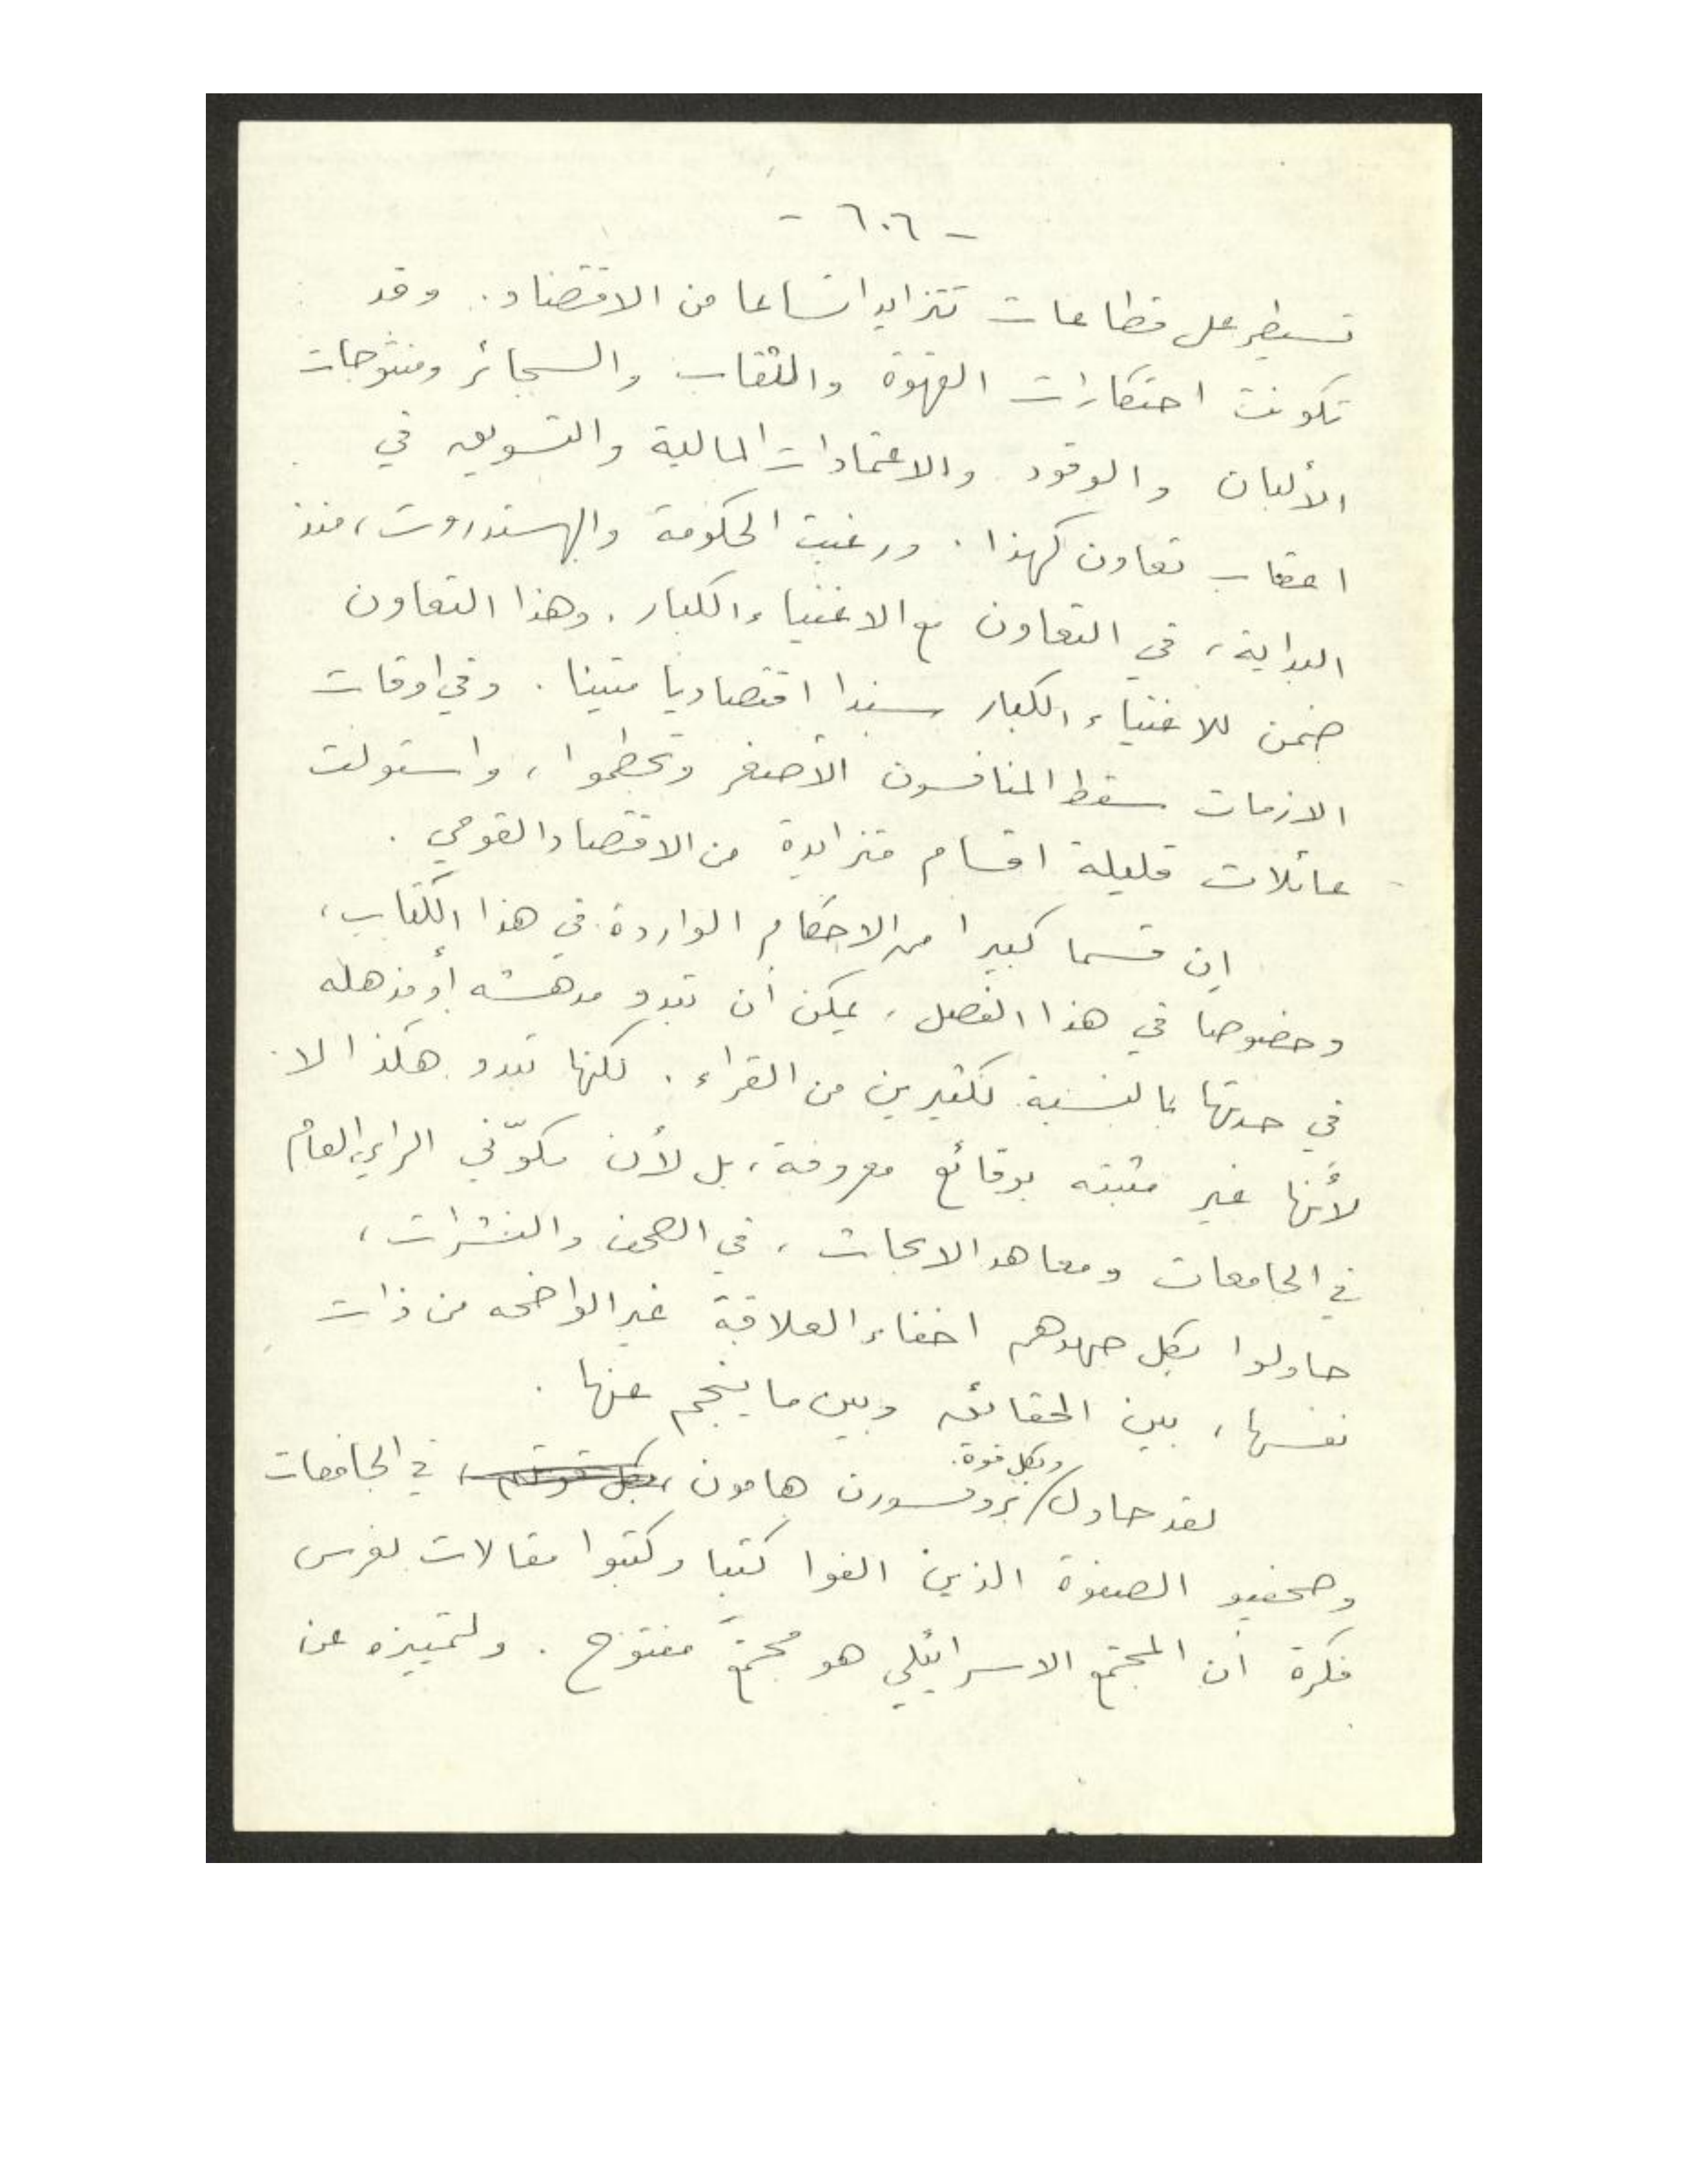 - ٦٠٦ -
تسيطر على قطاعات تتزايد اتساعا من الاقتصاد. وقد
تكونت احتكارات القهوة والثقاب والسجائر ومنتوجات
الألبان والوقود والاعتمادات المالية والتسويق في
اعقاب تعاون كهذا. ورغبت الحكومة والهستدروت، منذ
البداية، في التعاون مع الاغنياء الكبار. وهذا التعاون
ضمن للاغنياء الكبار سندا اقتصاديا متينا. وفي اوقات
الازمات سقط المنافسون الأصغر وتحطموا، واستولت
عائلات قليلة اقسام متزايدة من الاقتصاد القومي.
إن قسما كبيرا من الاحكام الواردة في هذا الكتاب،
وخصوصا في هذا الفصل، يمكن أن تبدو مدهشه أو مذهله
في حدتها بالنسبة لكثيرين من القراء. لكنها تبدو هكذا لا
لأنها غير مثبته بوقائع معروفة، بل لأن مكوّني الراي العام
في الجامعات ومعاهد الابحاث، في الصحف والنشرات،
حاولوا بكل جهدهم اخفاء العلاقة غير الواضحه من ذات
نفسها، بين الحقائق وبين ما ينجم عنها.
لقد حاول/ وبكل قوة. بروفسورن هامون، بكل قوتهم، في الجامعات
وصحفيو الصفوة الذين الفوا كتبا وكتبوا مقالات لغرس
فكرة أن المجتمع الاسرائيلي هو مجتمعَ مفتوح. ولتمييزه عن